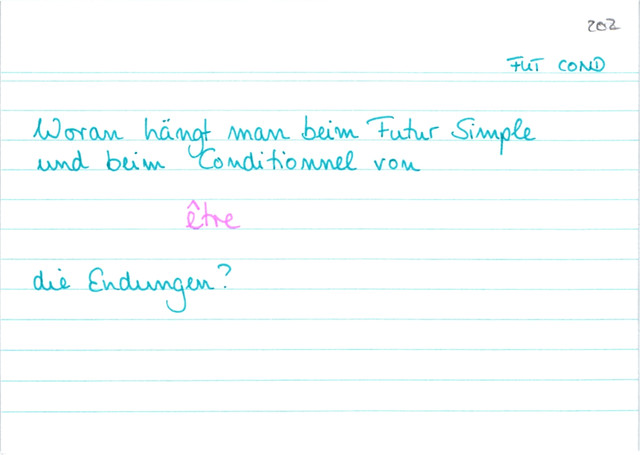 202
FUT COND
Woran hängt man beim Futur Simple
und beim Conditionnel von
être
die Endungen?